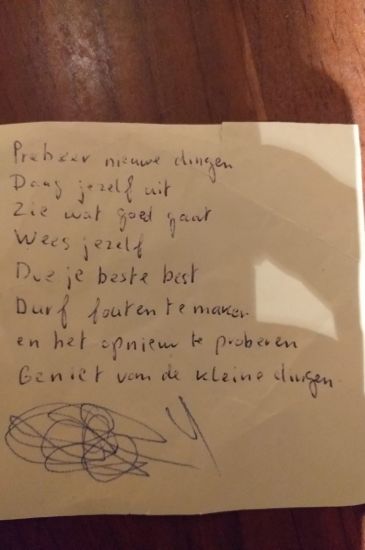 Probeer nieuwe dingen
Daag jezelf uit
Zie wat goed gaat
Wees jezelf
Doe je beste best
Durf fouten te maken
en het opnieuw te proberen
Geniet van de kleine dingen